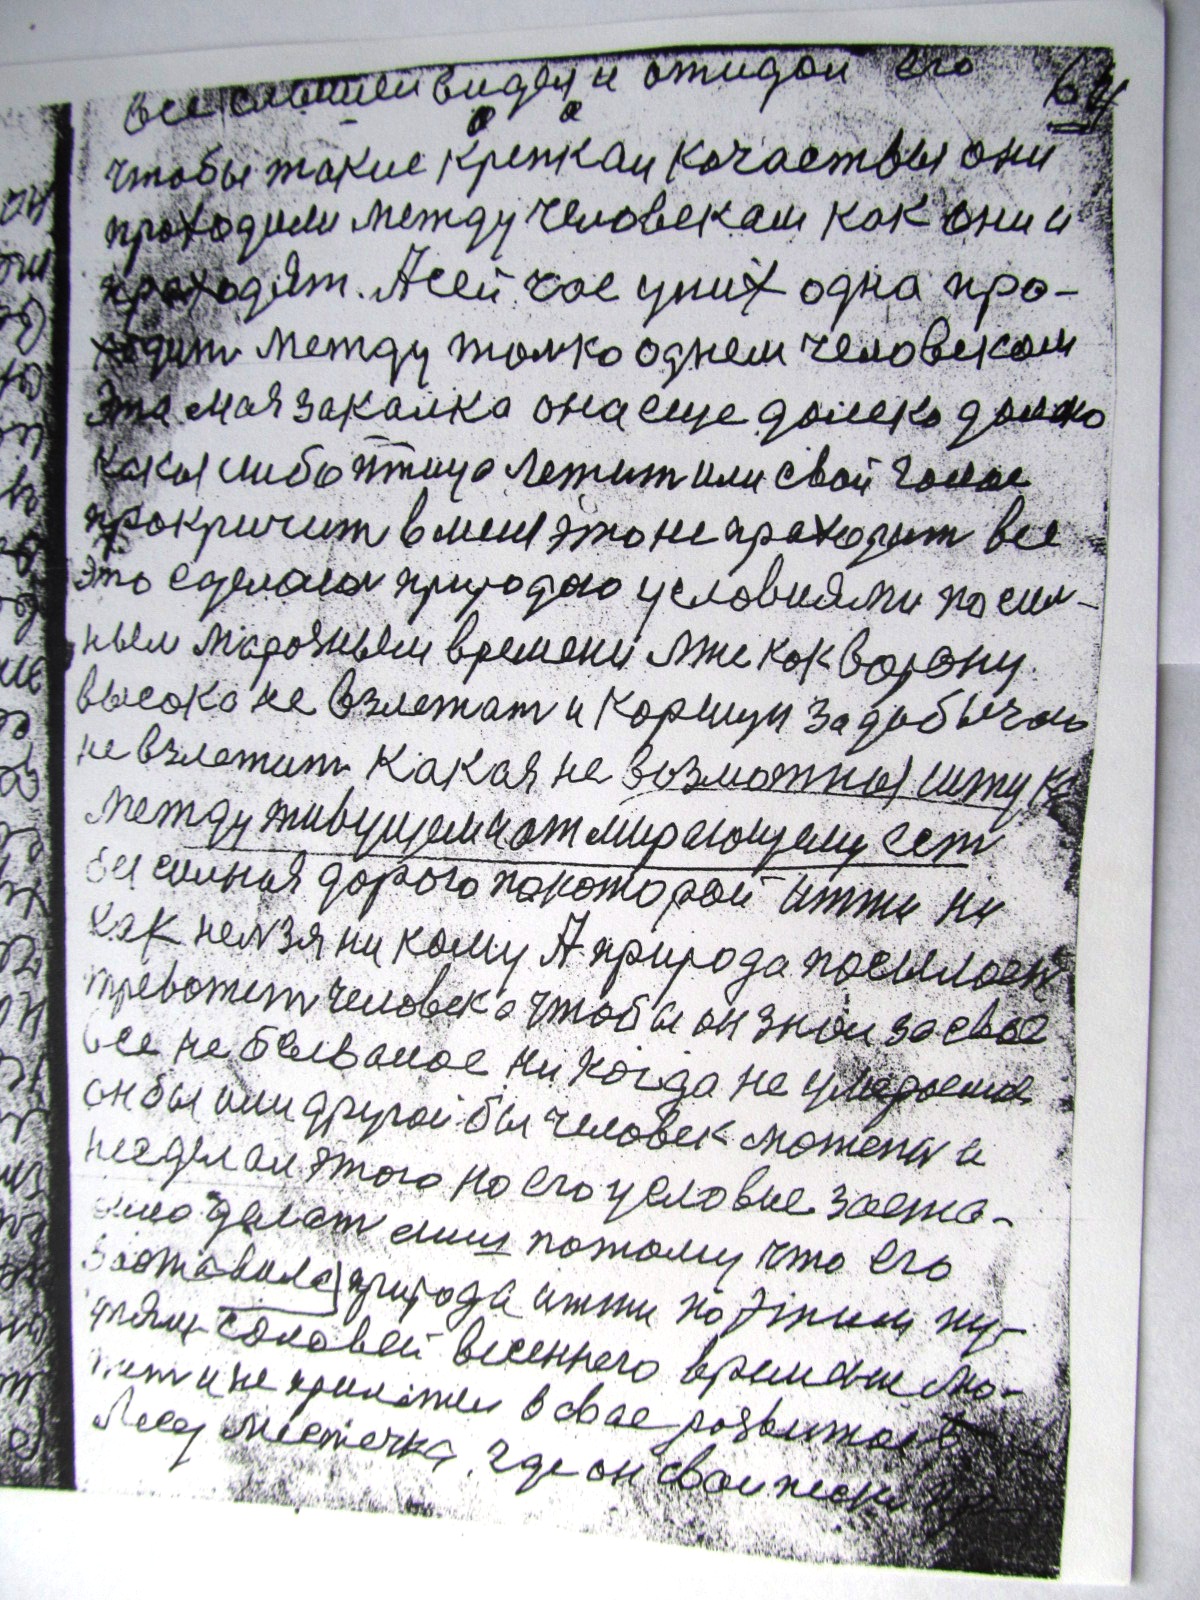 все слышел видел и ожидал его
64
чтобы такие крепкаи качаствы они
проходили между человекам как они и
праходят. А сей час уних одна про-
ходит между толко однем человекам
Эта мая закалка она еще далеко далеко
какая либо птица летит или свой голос
прокричит вмене это не праходит все
это сделалос природаю условиями
ным марозным времени как ворону
высока не взлетат и коршун за дабычаю
не взлетит какая не возможная штука
между живущем и отмирающему ест
бесилная дорога покоторай итти ни
как нелзя ни кому А природа посылает
тревожет человека чтобы он знал засвое
все не бывалое ни когда не
он бы или другой бы человек может и
неделал этого но его условие заста-
делат потому что его
заставила природа итти по этим пу-
тям соловей весеннего
и не в свое развитое
Лесу местечка где он свои песни